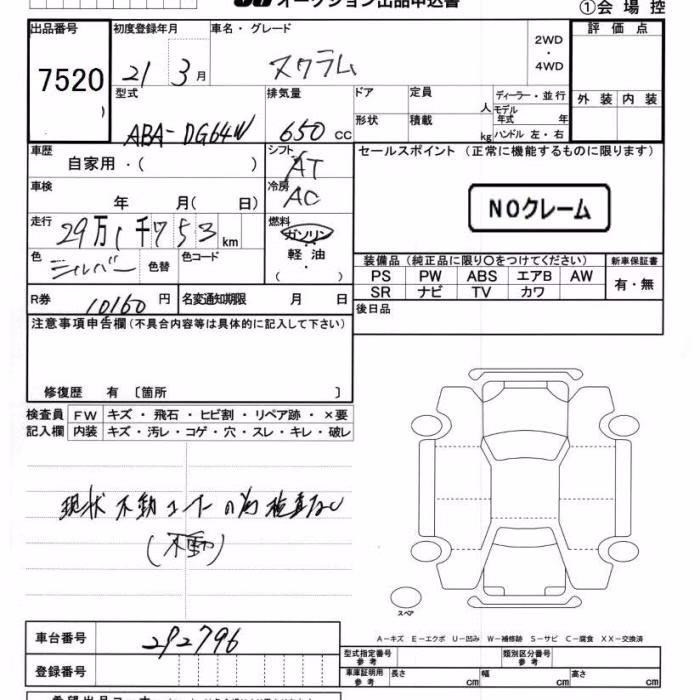 オークション出品申込書
①会場控
出品番号 初度登録年月 車名・グレード 評価点
7520 21 3月 スクラム 2WD・4WD
外装 内装
型式 排気量 ドア 定員 人 ディーラー・並行
モデル年式 年
ABA-DG64W 650cc 形状 積載 kg ハンドル 左・右
車歴 シフト セールスポイント (正常に機能するものに限ります)
自家用・( ) AT
車検 冷房
年 月( 日) AC NOクレーム
走行 29万1千753km 燃料
ガソリン
軽油
( )
色 シルバー 色替 色コード
装備品(純正品に限り○をつけてください) 新車保証書
PS PW ABS エアB AW 有・無
SR ナビ TV カワ
R券 10160円 名変通知期限 月 日
後日品
注意事項申告欄(不具合内容等は具体的に記入して下さい)
修復歴 有 〔箇所 〕
検査員 FW キズ・飛石・ヒビ割・リペア跡・×要
記入欄 内装 キズ・汚レ・コゲ・穴・スレ・キレ・破レ
現状 不動 の為 検査なし
(不動)
スペア
A-キズ E-エクボ U-凹み W-補修跡 S-サビ C-腐食 XX-交換済
車台番号 292796
型式指定番号 参考 類別区分番号 参考
登録番号
車庫証明用 参考 長さ cm 幅 cm 高さ cm